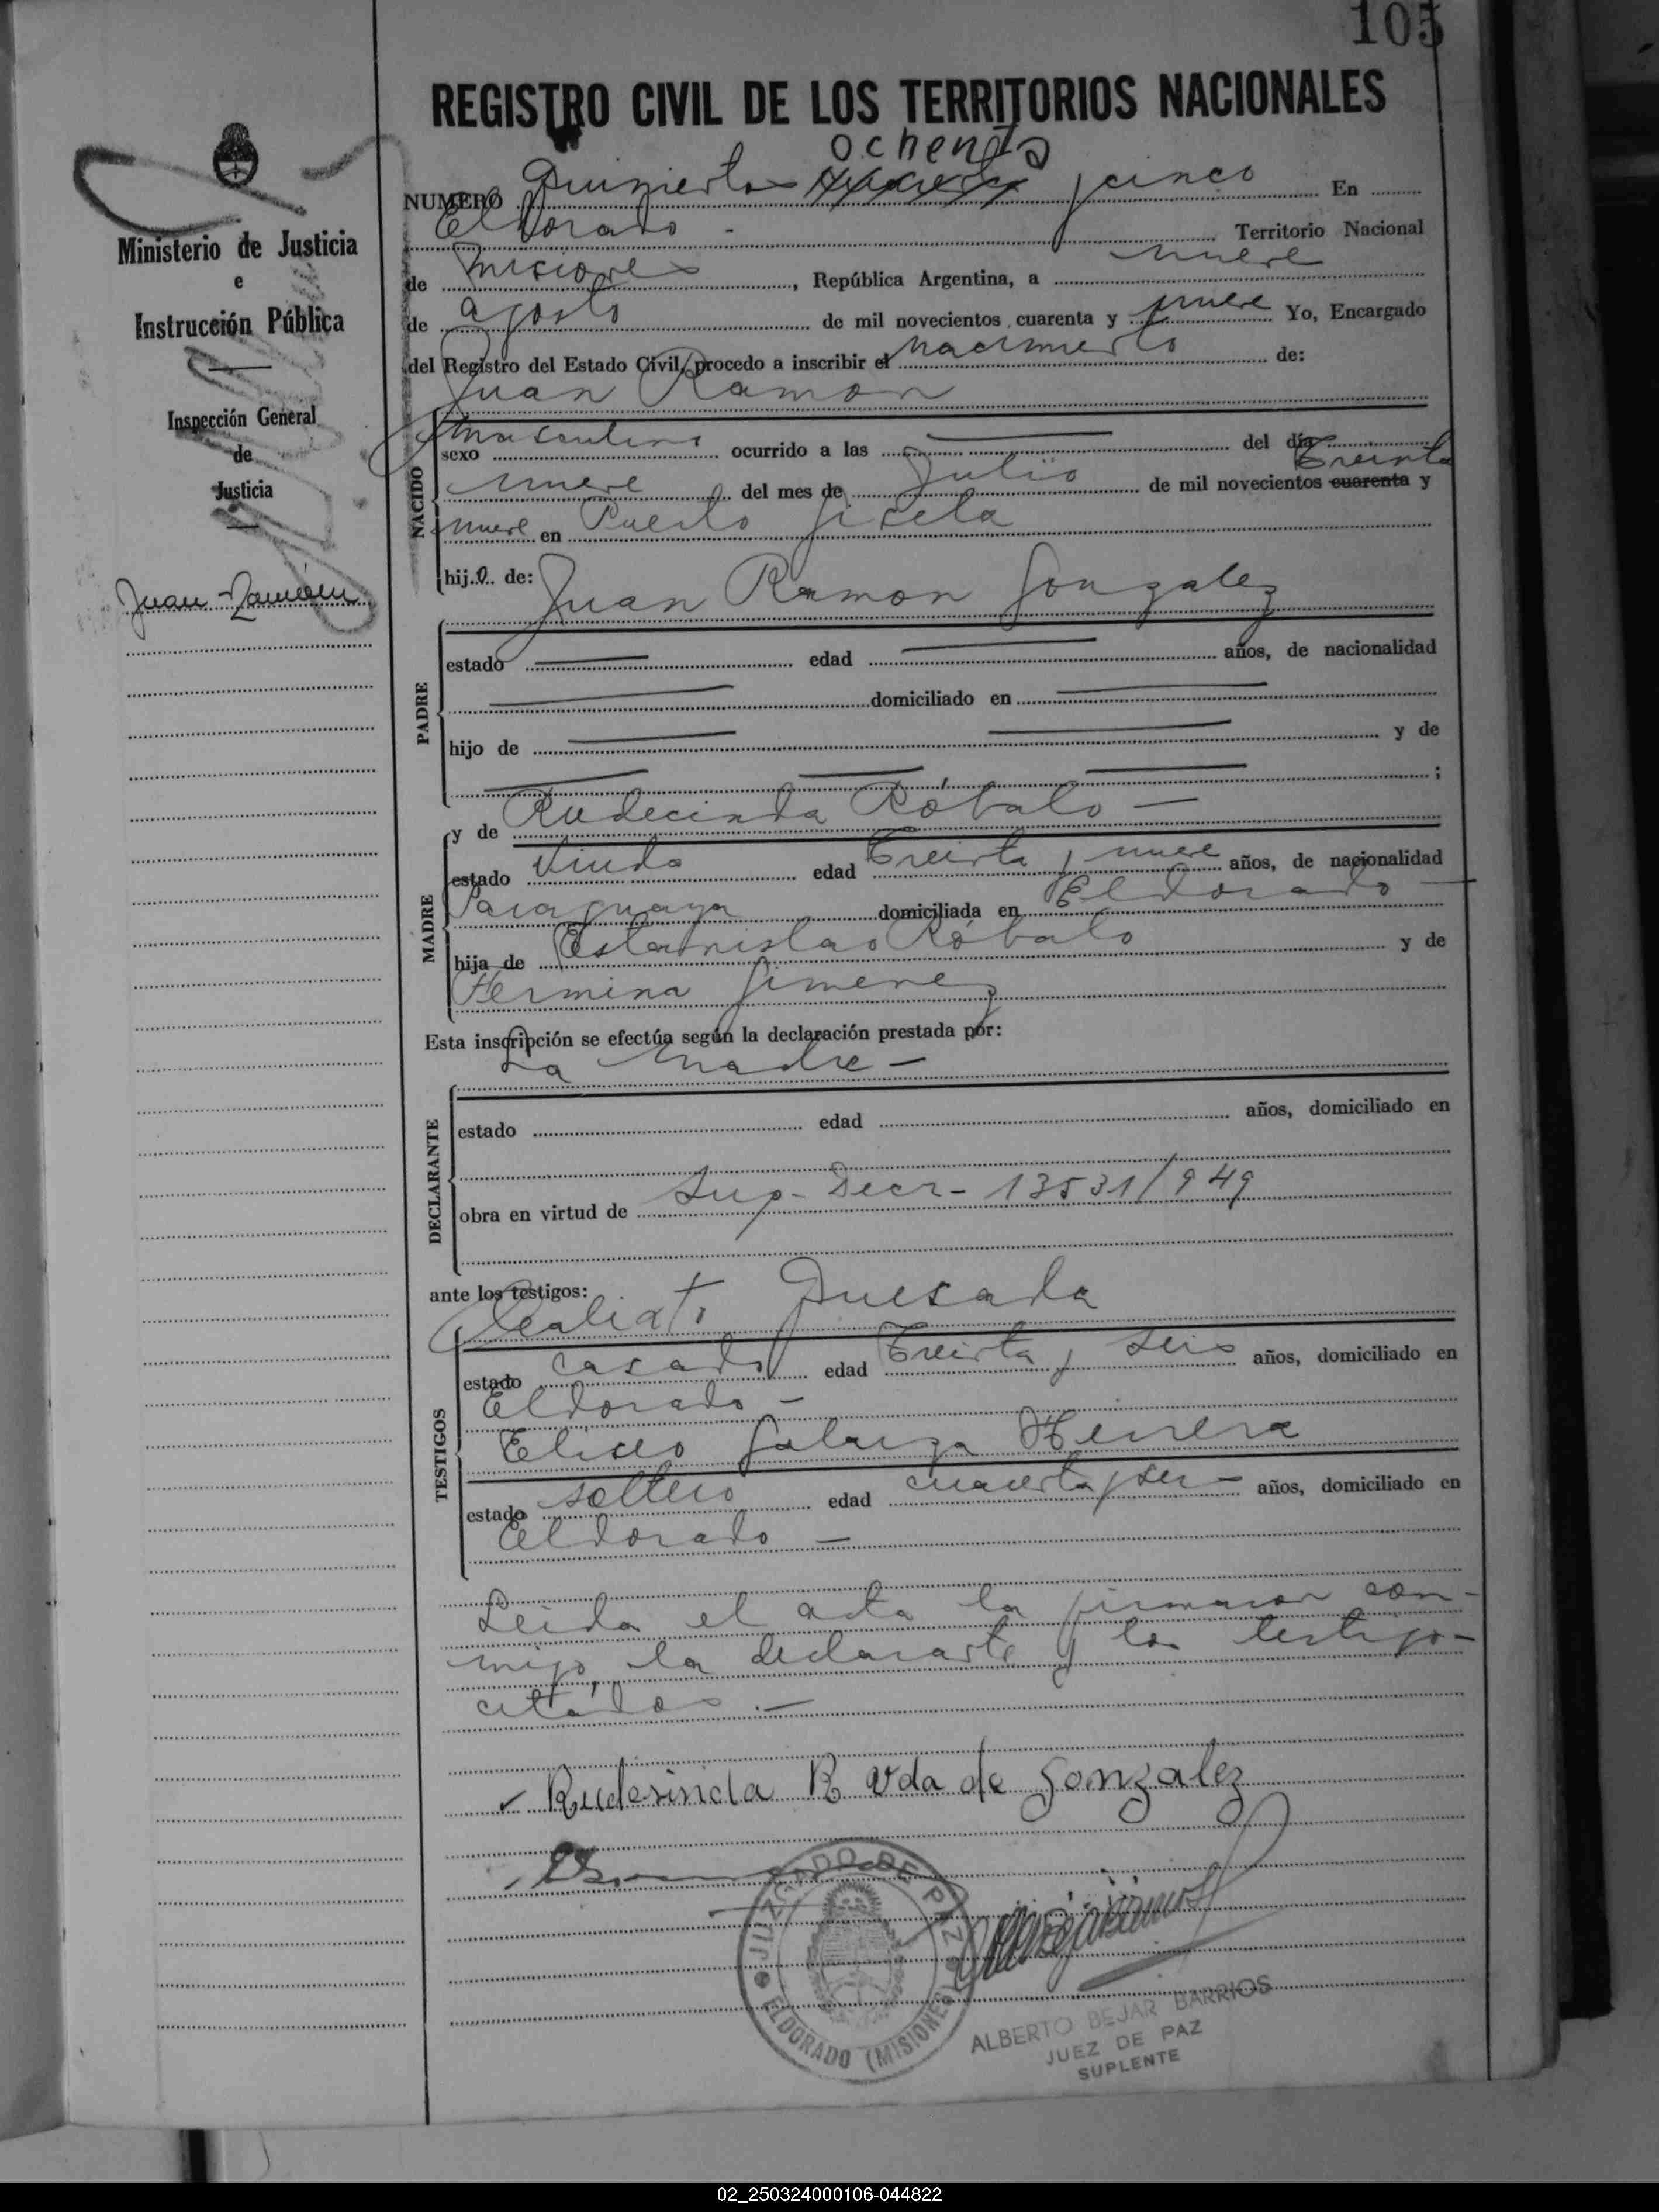 105
REGISTRO CIVIL DE LOS TERRITORIOS NACIONALES
ochenta
NUMERO Quinientos y cinco En
Eldorado - Territorio Nacional
de Misiones, República Argentina, a nueve
de agosto de mil novecientos cuarenta y nueve Yo, Encargado
del Registro del Estado Civil, procedo a inscribir el nacimiento de:
Juan Ramon
NACIDO
sexo masculino ocurrido a las del día
treinta
nueve del mes de Julio de mil novecientos cuarenta y
nueve en Puerto Gisela
hijo de: Juan Ramon Gonzalez
PADRE
estado edad años, de nacionalidad
domiciliado en
hijo de y de
;
MADRE
y de Rudecinda Róbalo -
estado Viuda edad treinta y nueve años, de nacionalidad
Paraguaya domiciliada en Eldorado -
hija de Estanislao Róbalo y de
Fermina Jimenez
Esta inscripción se efectúa según la declaración prestada por:
La madre -
DECLARANTE
estado edad años, domiciliado en
obra en virtud de Sup- Decr- 13531/949
ante los testigos:
Calixto Quesada
TESTIGOS
estado casado edad treinta y seis años, domiciliado en
Eldorado -
Eliseo Galarza Herrera
estado soltero edad cuarenta y seis años, domiciliado en
Eldorado -
Leida el acta la firmaron con-
migo, la declarante y los testigos
citados.-
Rudesinda R vda de Gonzalez
JUZGADO DE PAZ
ELDORADO (MISIONES)
ALBERTO BEJAR BARRIOS
JUEZ DE PAZ
SUPLENTE
Ministerio de Justicia
e
Instrucción Pública
Inspección General
de
Justicia
Juan Ramón
02_250324000106-044822